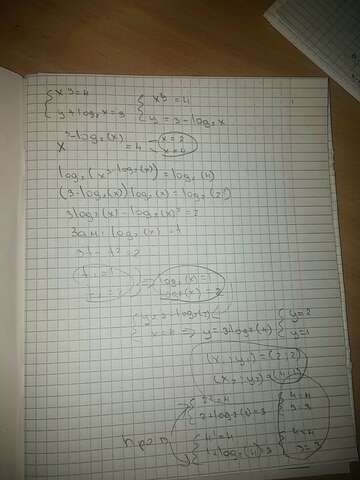 {x^y=4 {x^y=4
{y+log₂x=3 {y=3-log₂x
x^(3-log₂(x))=4 x=2
x=4
log₂(x^(3-log₂(x)))=log₂(4)
(3-log₂(x))log₂(x)=log₂(2²)
3log₂(x)-log₂(x)²=2
Зам: log₂(x)=t
3t-t²=2
t=1 => log₂(x)=1
t=2 log₂(x)=2
{y=3-log₂(2) {y=2
{x=4 => y=3-log₂(4) {y=1
(x₁;y₁)=(2;2)
(x₂;y₂)=(4;1)
{2²=4 {4=4
{2+log₂(2)=3 {3=3
{4¹=4 {4=4
{1+log₂(4)=3 {3=3